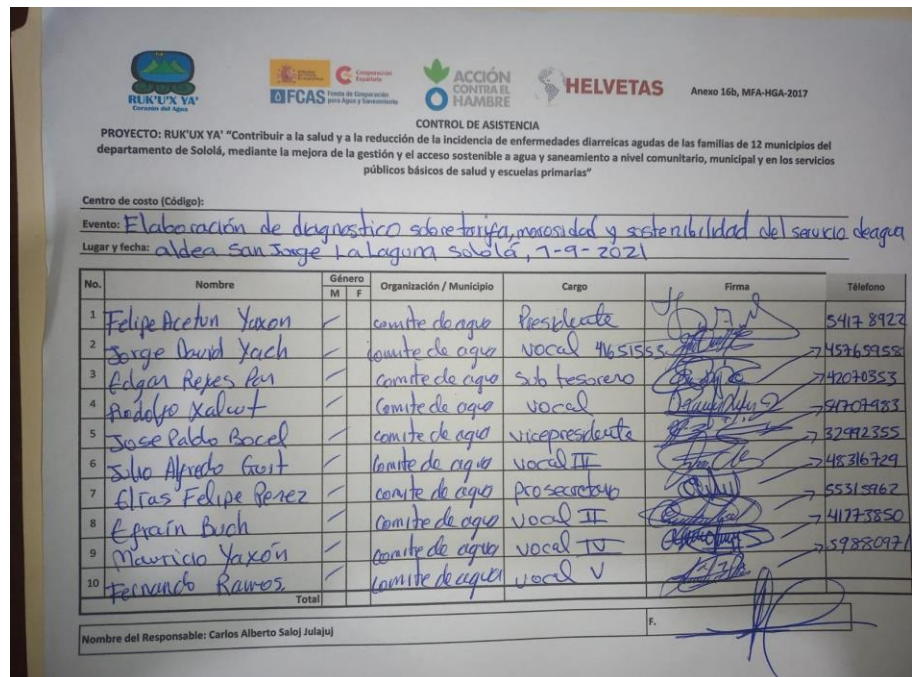 RUK'U'X YA'
Corazón del Agua
Cooperación Española
FCAS Fondo de Cooperación para Agua y Saneamiento
ACCIÓN CONTRA EL HAMBRE
HELVETAS
Anexo 16b, MFA-HGA-2017
CONTROL DE ASISTENCIA
PROYECTO: RUK'UX YA' "Contribuir a la salud y a la reducción de la incidencia de enfermedades diarreicas agudas de las familias de 12 municipios del
departamento de Sololá, mediante la mejora de la gestión y el acceso sostenible a agua y saneamiento a nivel comunitario, municipal y en los servicios
públicos básicos de salud y escuelas primarias"
Centro de costo (Código):
Evento: Elaboración de diagnostico sobre tarifa, morosidad y sostenibilidad del servicio de agua
Lugar y fecha: aldea San Jorge La Laguna Sololá, 7-9-2021
No. Nombre Género M F Organización / Municipio Cargo Firma Télefono
1 Felipe Acetun Yaxon comite de agua Presidente 5417 8922
2 Jorge David Yach comite de agua vocal 41651553 45765958
3 Edgar Reyes Pan comite de agua sub tesorero 42070353
4 Rodolfo Xalcut comite de agua vocal 54707983
5 Jose Pablo Bocel comite de agua vicepresidente 32992355
6 Julio Alfredo comite de agua vocal III 48316729
7 Elias Felipe Perez comite de agua prosecretario 55315962
8 Efraín Buch comite de agua vocal II 41773850
9 Mauricio Yaxón comite de agua vocal IV 59880971
10 Fernando Ramos. comite de agua vocal V
Total
Nombre del Responsable: Carlos Alberto Saloj Julajuj F.